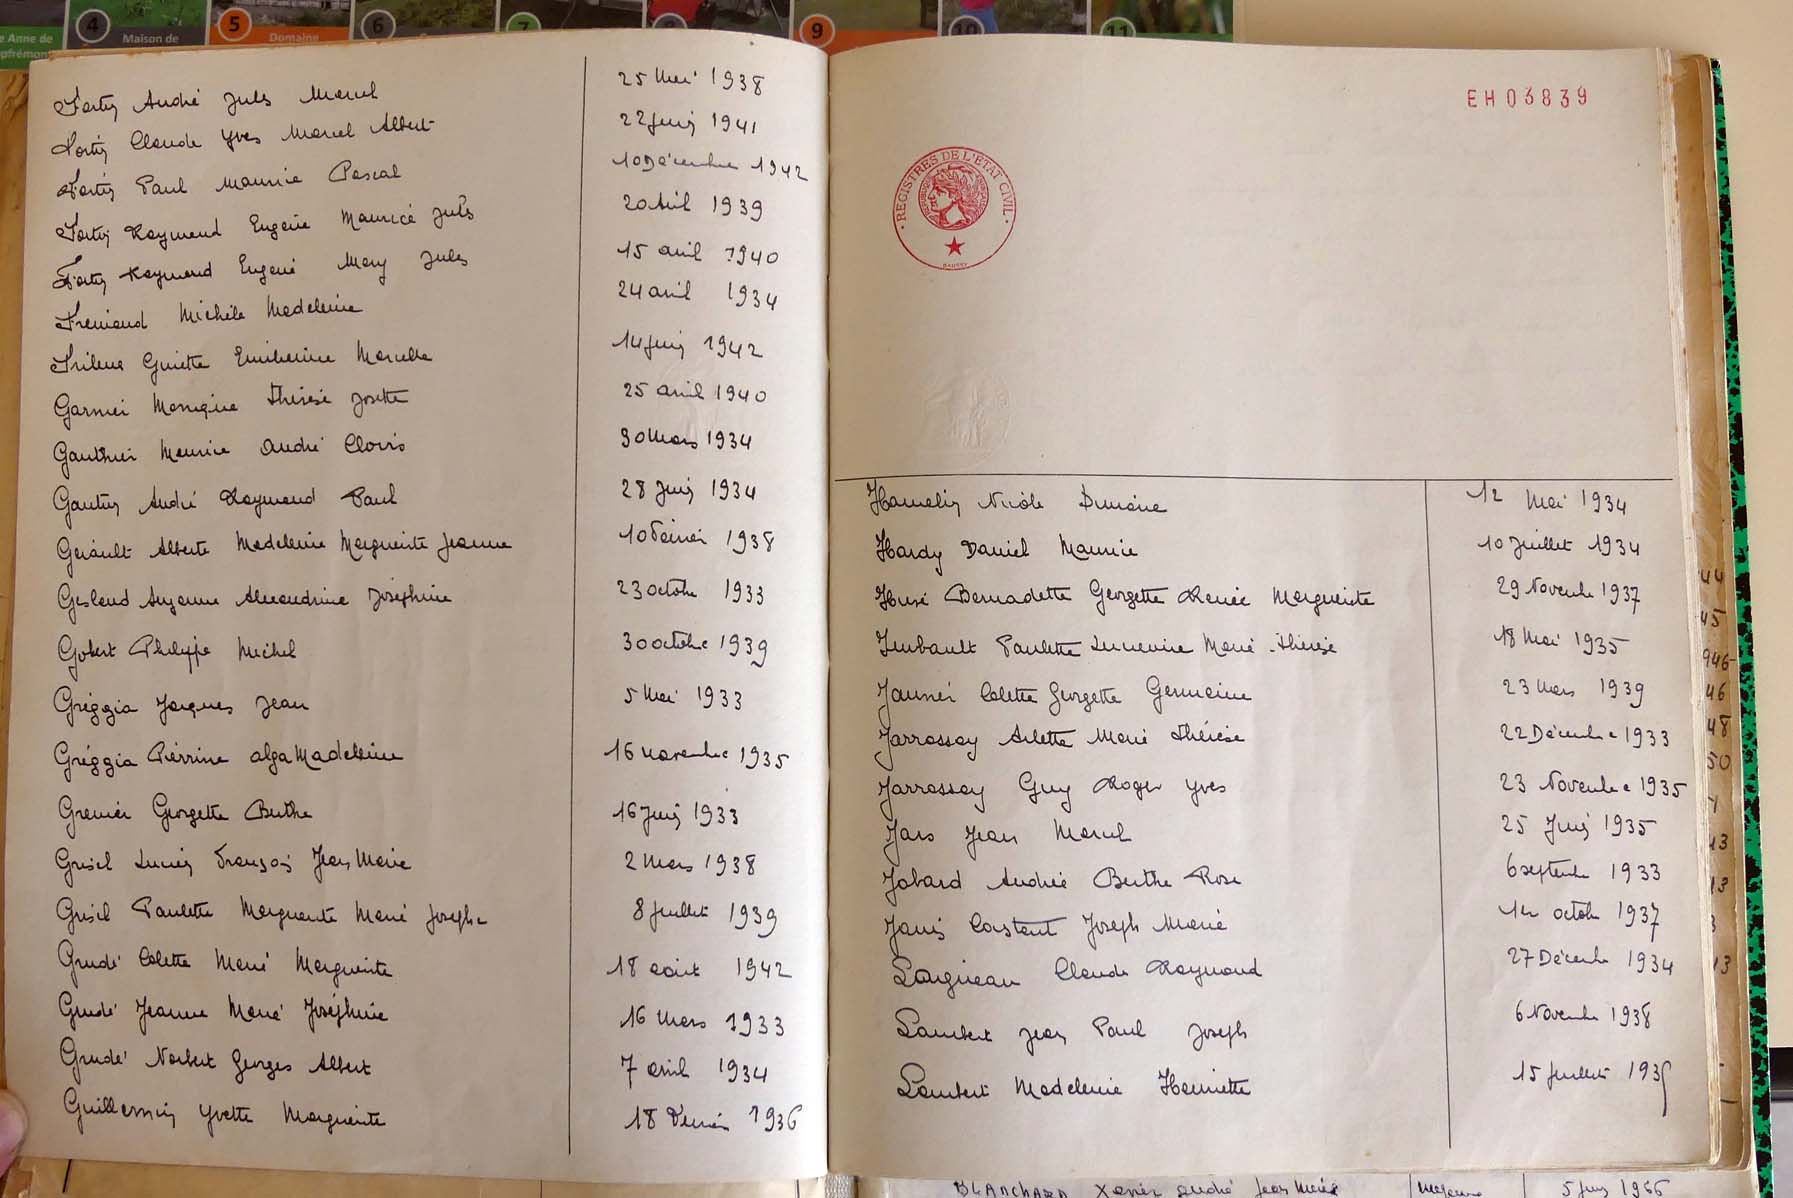 4
5
6
7
8
9
10
11
e Anne de
Maison de
Domaine
Fortin André Jules Marcel 25 Mai 1938
Fortin Claude Yves Marcel Albert 22 juin 1941
Fortin Paul Maurice Pascal 10 Décembre 1942
Fortin Raymond Eugène Maurice Jules 20 Avril 1939
Fortin Raymond Eugène Mary Jules 15 avril 1940
Michèle Madeleine 24 avril 1934
Marcelle 14 juin 1942
Garnier Monique Thérèse Josette 25 avril 1940
Gauthier Maurice André Clovis 30 Mars 1934
Gautier André Raymond Paul 28 Juin 1934
Gérault Alberte Madeleine Marguerite Jeanne 10 Février 1938
Gesland Suzanne Alexandrine Joséphine 23 octobre 1933
Gobert Philippe Michel 30 octobre 1939
Gréggia Jacques Jean 5 Mai 1933
Gréggia Pierrine Olga Madeleine 16 novembre 1935
Grenier Georgette Berthe 16 Juin 1933
Grisel Lucien François Jean Marie 2 Mars 1938
Grisel Paulette Marguerite Marie Josephe 8 juillet 1939
Grudé Colette Marie Marguerite 18 août 1942
Grudé Jeanne Marie Joséphine 16 Mars 1933
Grudé Norbert Georges Albert 7 avril 1934
Guillemin Yvette Marguerite 18 Février 1936
EH03839
REGISTRES DE L'ÉTAT CIVIL
Hamelin Nicole 12 Mai 1934
Hardy Daniel Maurice 10 Juillet 1934
Husé Bernadette Georgette Renée Marguerite 29 Novembre 1937
Imbault Paulette Lucienne Marie-Thérèse 18 Mai 1935
Jaunier Colette Georgette Germaine 23 Mars 1939
Jarrossay Arlette Marie Thérèse 22 Décembre 1933
Jarrossay Guy Roger Yves 23 Novembre 1935
Jars Jean Marcel 25 Juin 1935
Jobard Andrée Berthe Rose 6 septembre 1933
Constant Joseph Marie octobre 1937
Laigneau Claude Raymond 27 Décembre 1934
Lambert Jean Paul Joseph 6 Novembre 1938
Lambert Madeleine Henriette 15 juillet
44
45
946
46
48
50
BLANCHARD Xavier André Jean Marie 5 Juin 1966